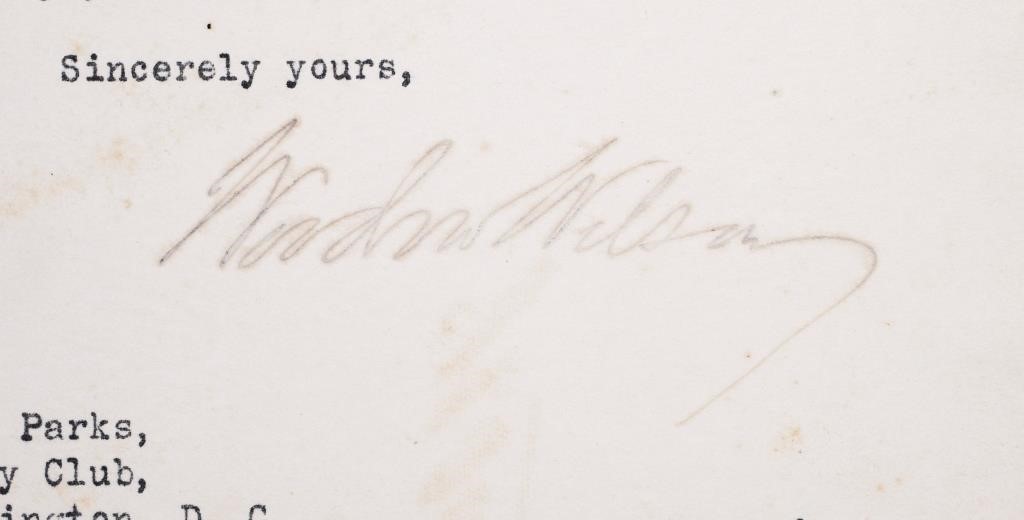 Sincerely yours,
Woodrow Wilson
Parks,
y Club,
ington, D. C.